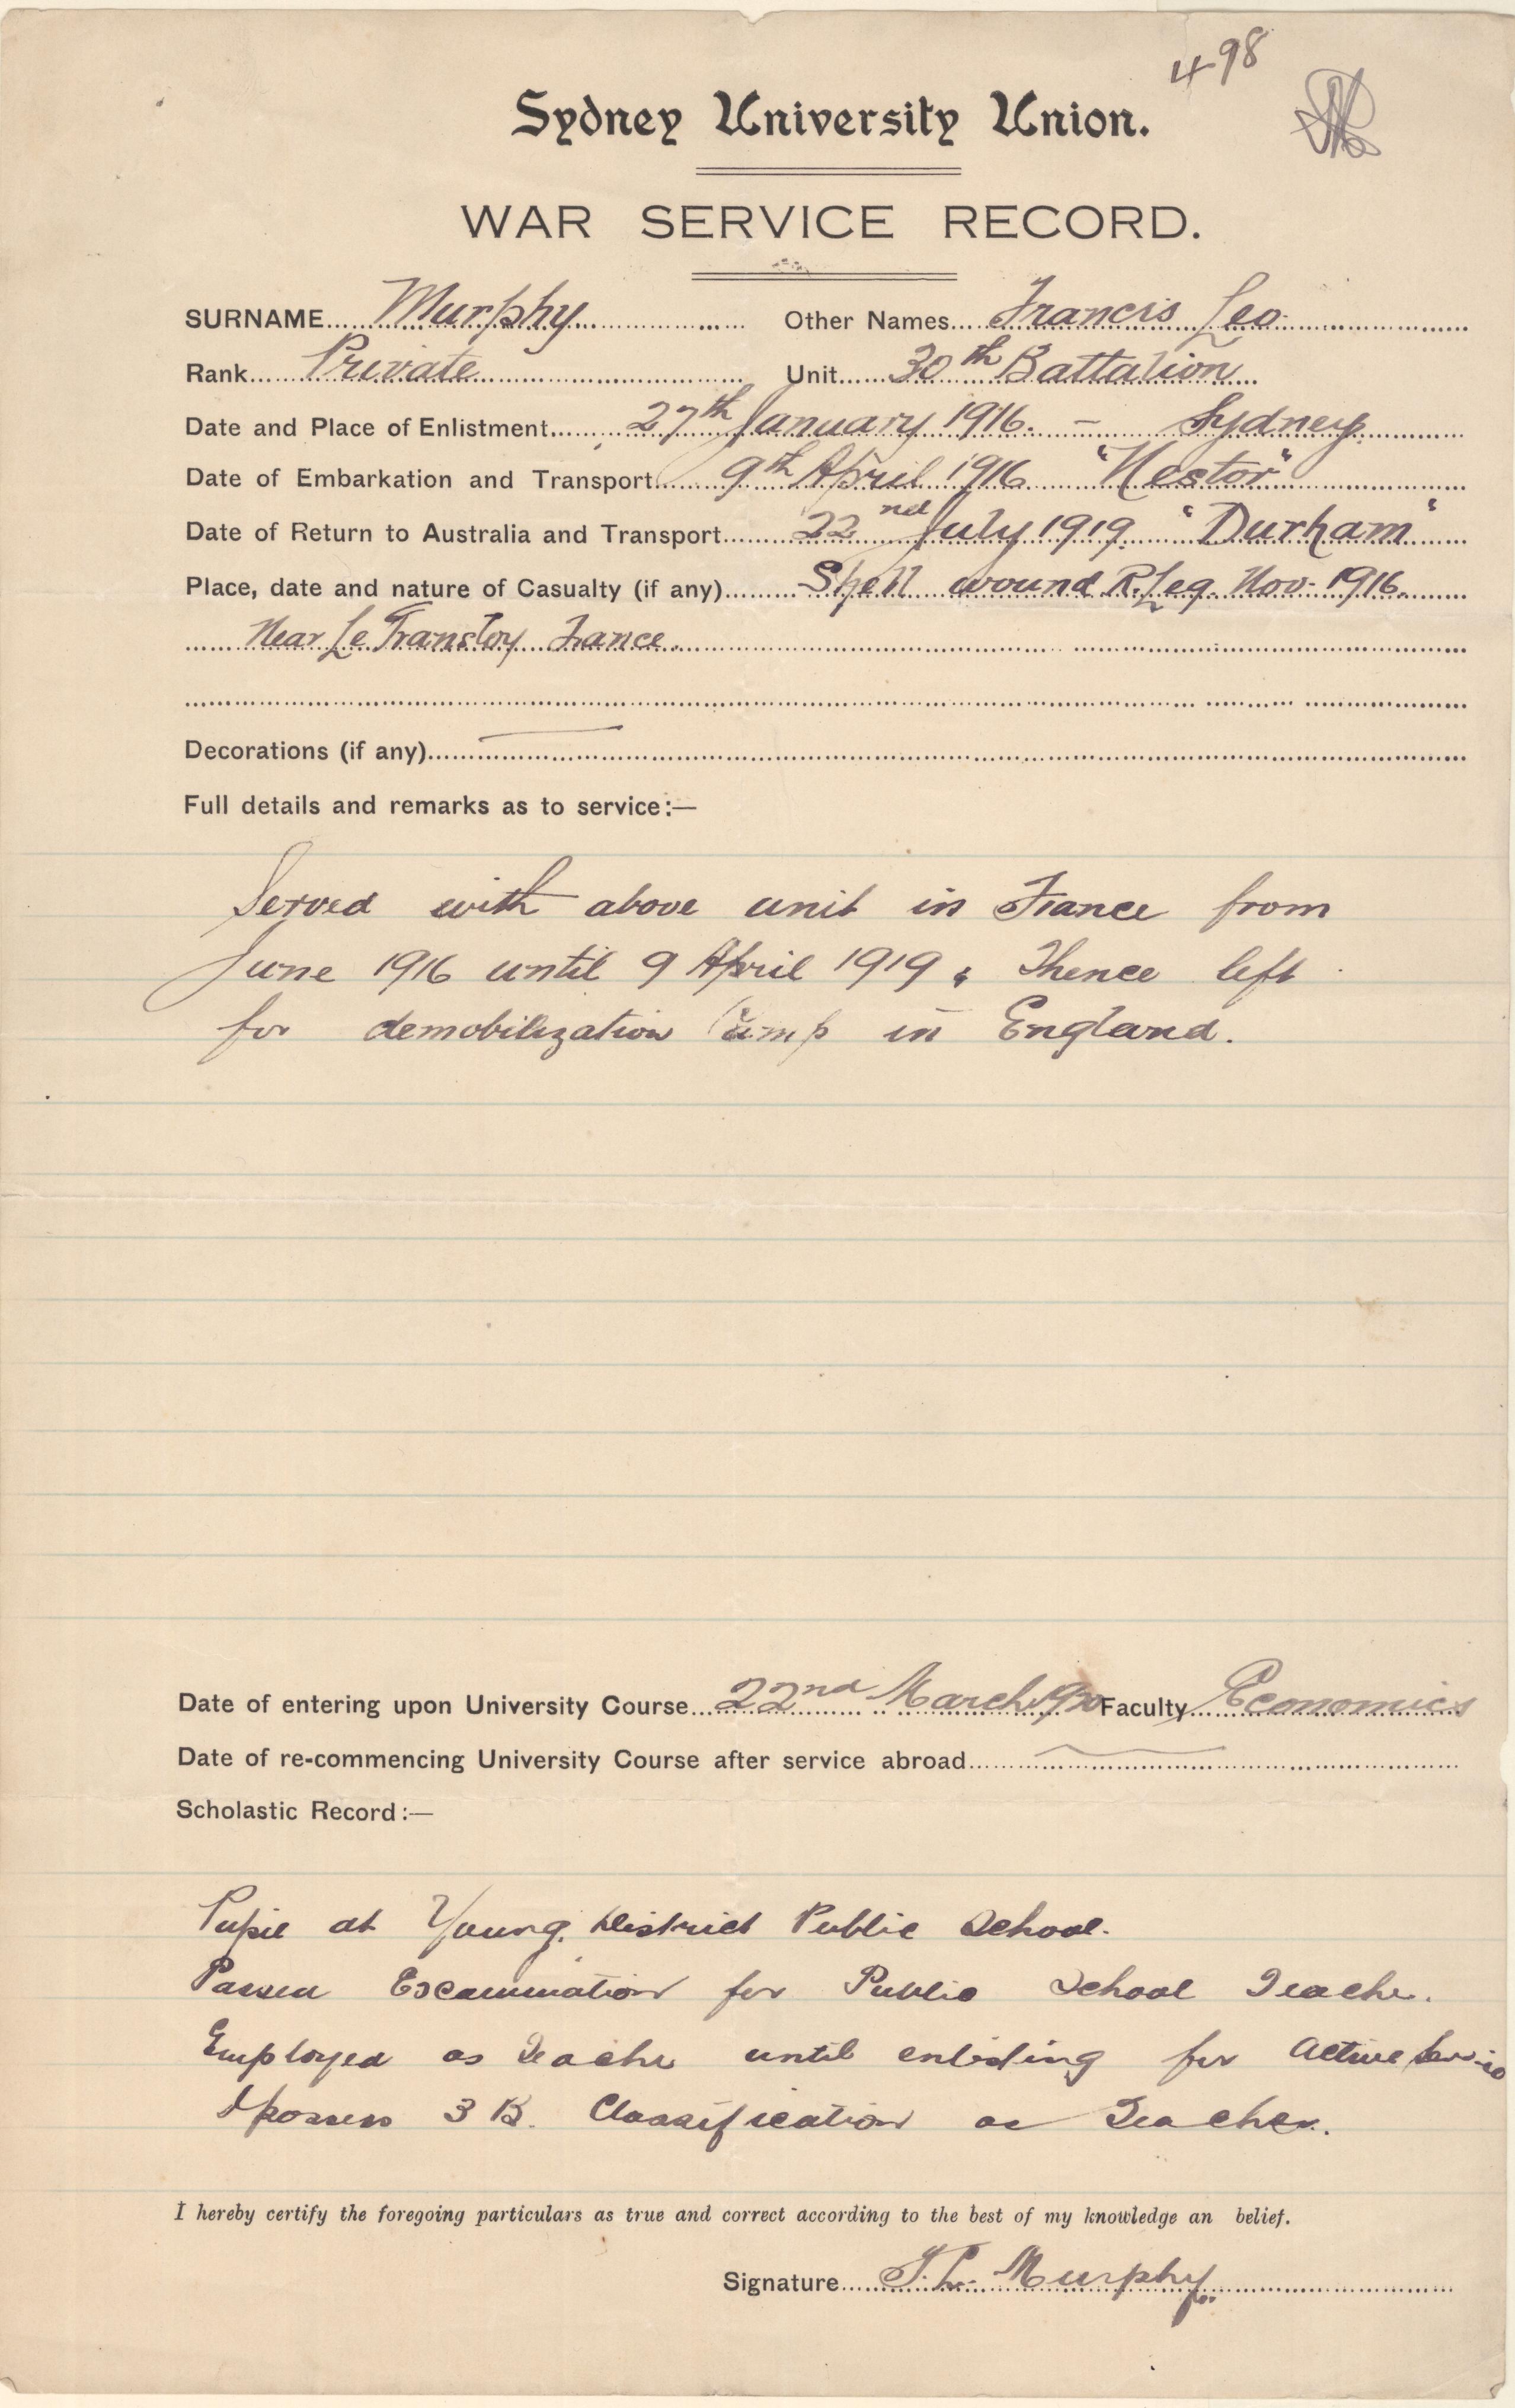 498
Sydney University Union.
WAR SERVICE RECORD.
SURNAME Murphy Other Names Francis Leo
Rank Private Unit 30th Battalion
Date and Place of Enlistment 27th January 1916. - Sydney
Date of Embarkation and Transport 9th April 1916 "Nestor"
Date of Return to Australia and Transport 22nd July 1919. "Durham"
Place, date and nature of Casualty (if any) Shell wound R. Leg. Nov. 1916.
Near Le Transloy France.
Decorations (if any)
Full details and remarks as to service:—
Served with above unit in France from
June 1916 until 9 April 1919, Thence left
for demobilization Camp in England.
Date of entering upon University Course 22nd March 1920 Faculty Economics
Date of re-commencing University Course after service abroad
Scholastic Record:—
Pupil at Young District Public School.
Passed Examination for Public School Teacher.
Employed as Teacher until enlisting for Active Service
I possess 3 B. Classification as Teacher.
I hereby certify the foregoing particulars as true and correct according to the best of my knowledge an belief.
Signature F. L. Murphy.